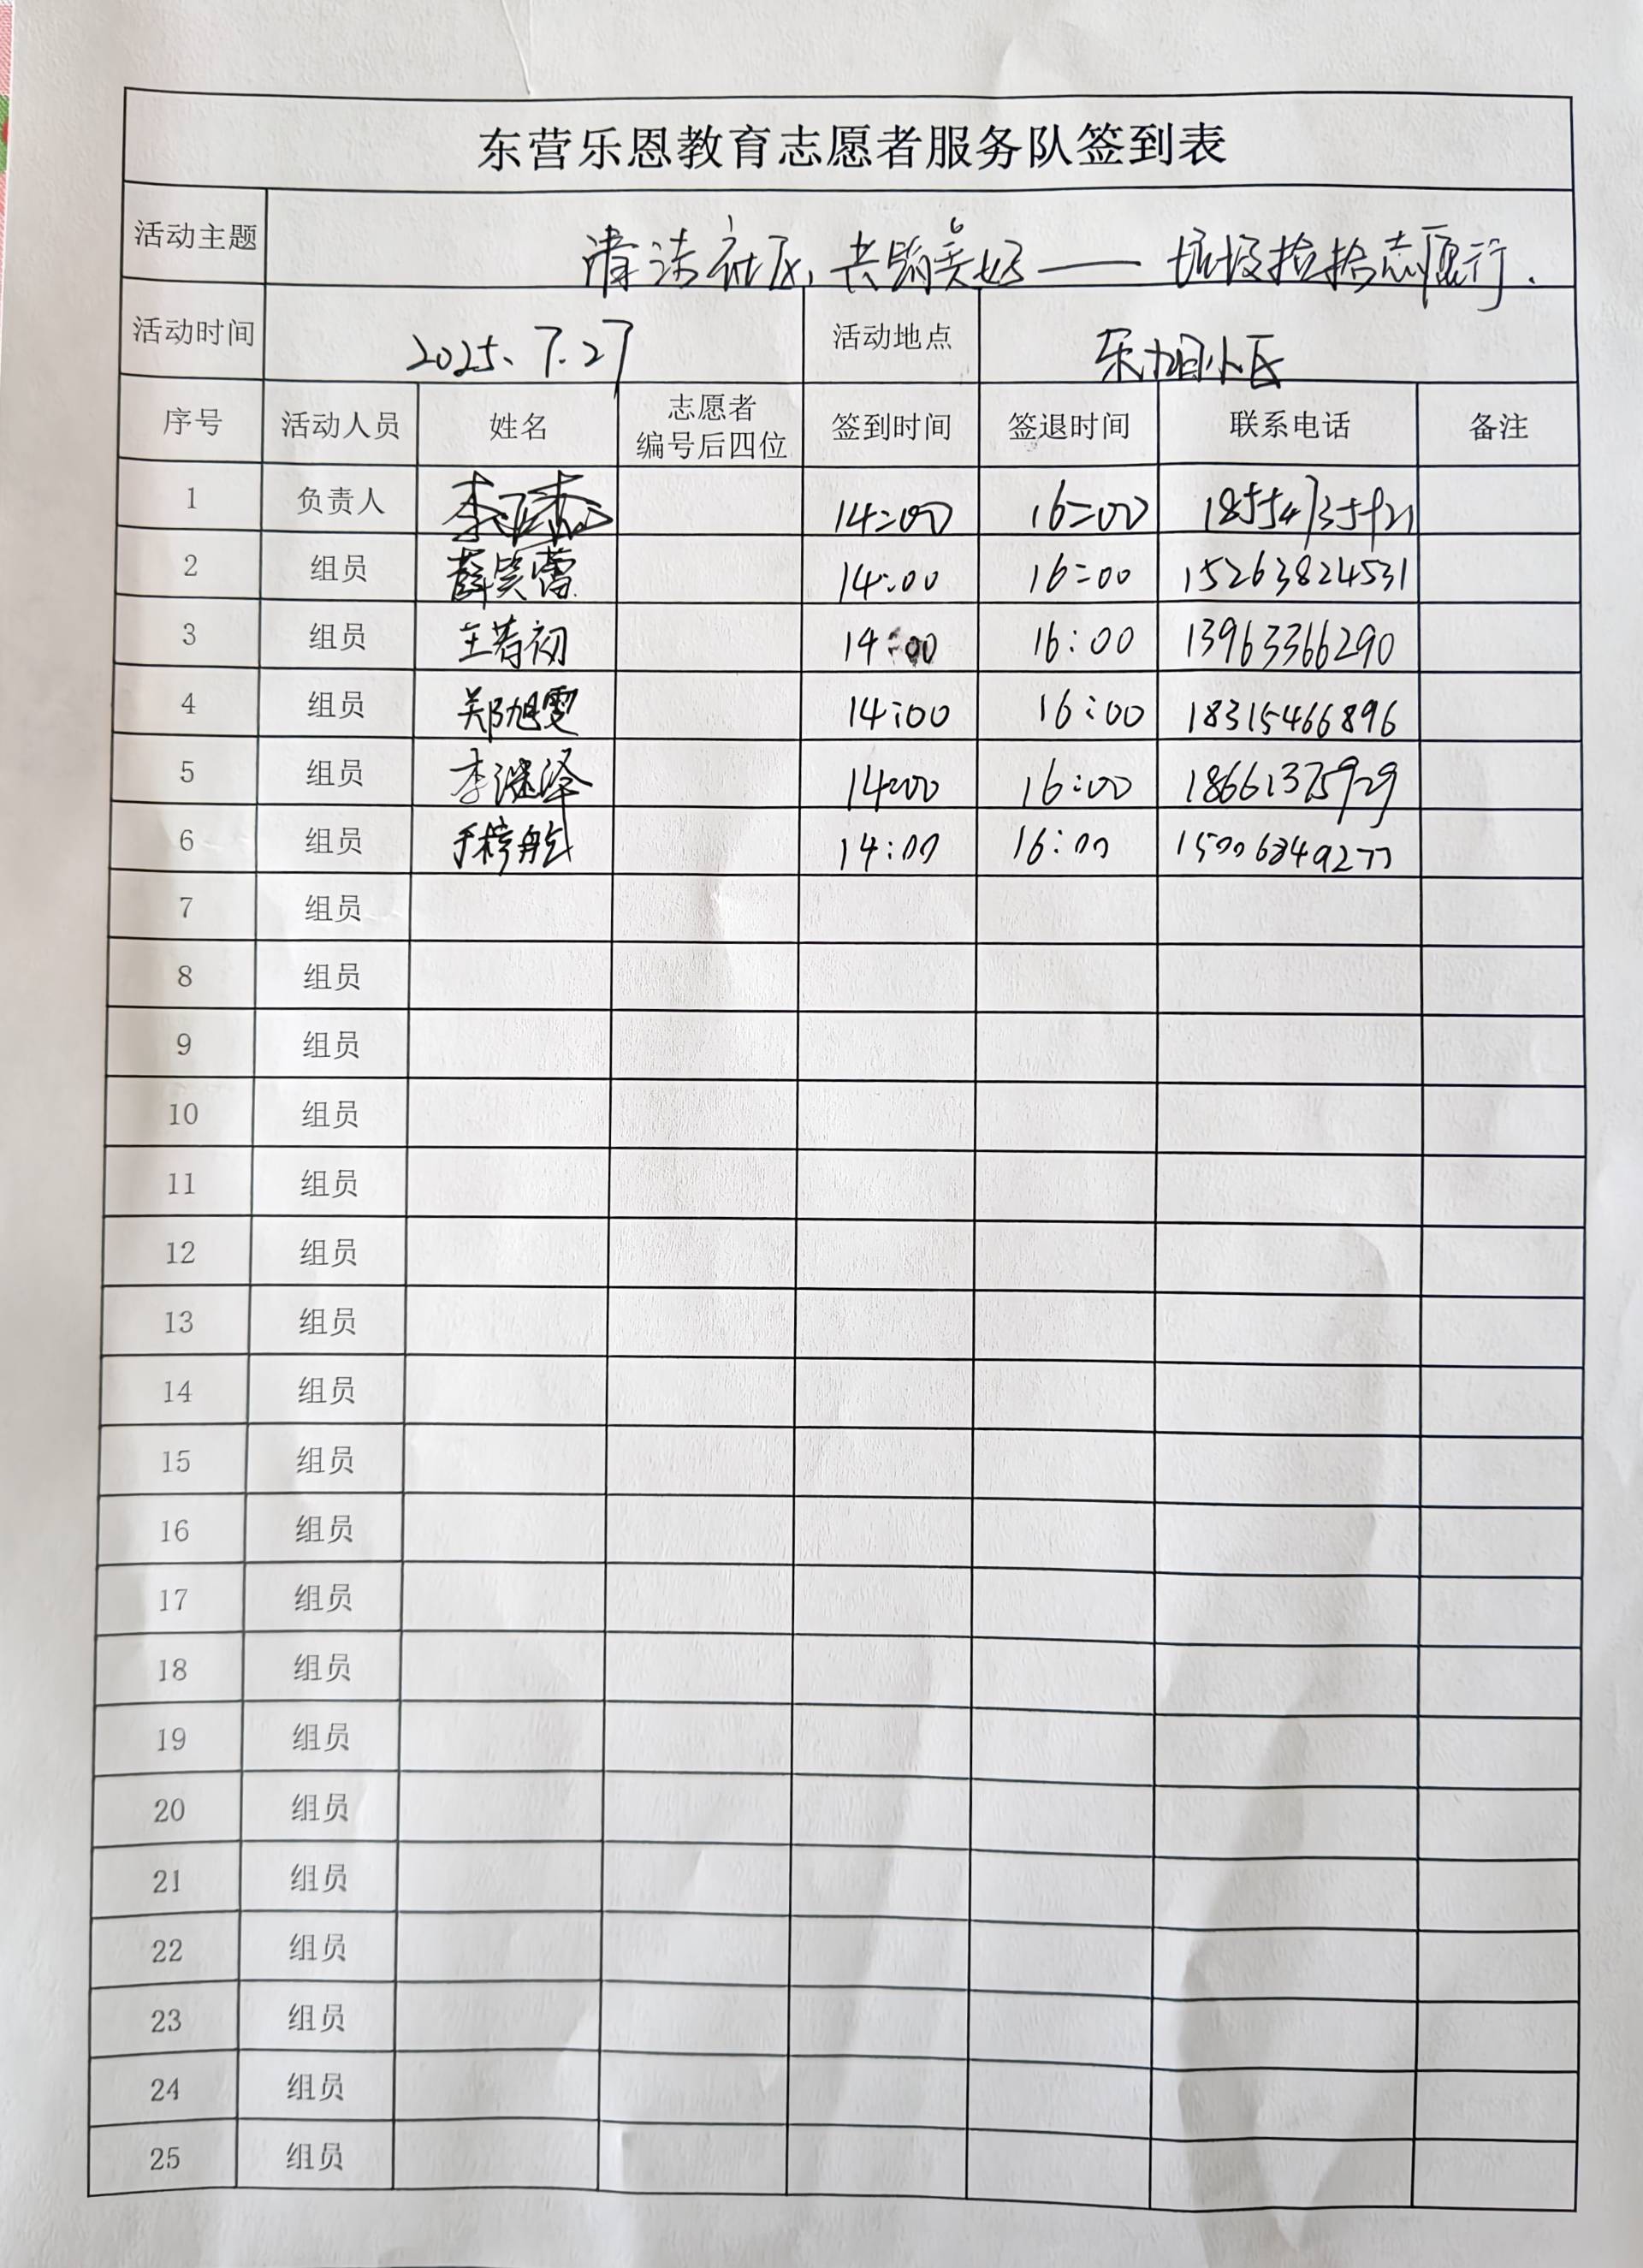 东营乐恩教育志愿者服务队签到表
活动主题 清洁社区,共筑美好——垃圾捡拾志愿行.
活动时间 2025.7.27 活动地点 小区
序号 活动人员 姓名 志愿者编号后四位 签到时间 签退时间 联系电话 备注
1 负责人 李 14:00 16:00 18554735921
2 组员 薛笑蕾 14:00 16:00 15263824531
3 组员 王若初 14:00 16:00 13963366290
4 组员 郑旭雯 14:00 16:00 18315466896
5 组员 李继泽 14:00 16:00 18661375929
6 组员 14:00 16:00 15006849277
7 组员
8 组员
9 组员
10 组员
11 组员
12 组员
13 组员
14 组员
15 组员
16 组员
17 组员
18 组员
19 组员
20 组员
21 组员
22 组员
23 组员
24 组员
25 组员